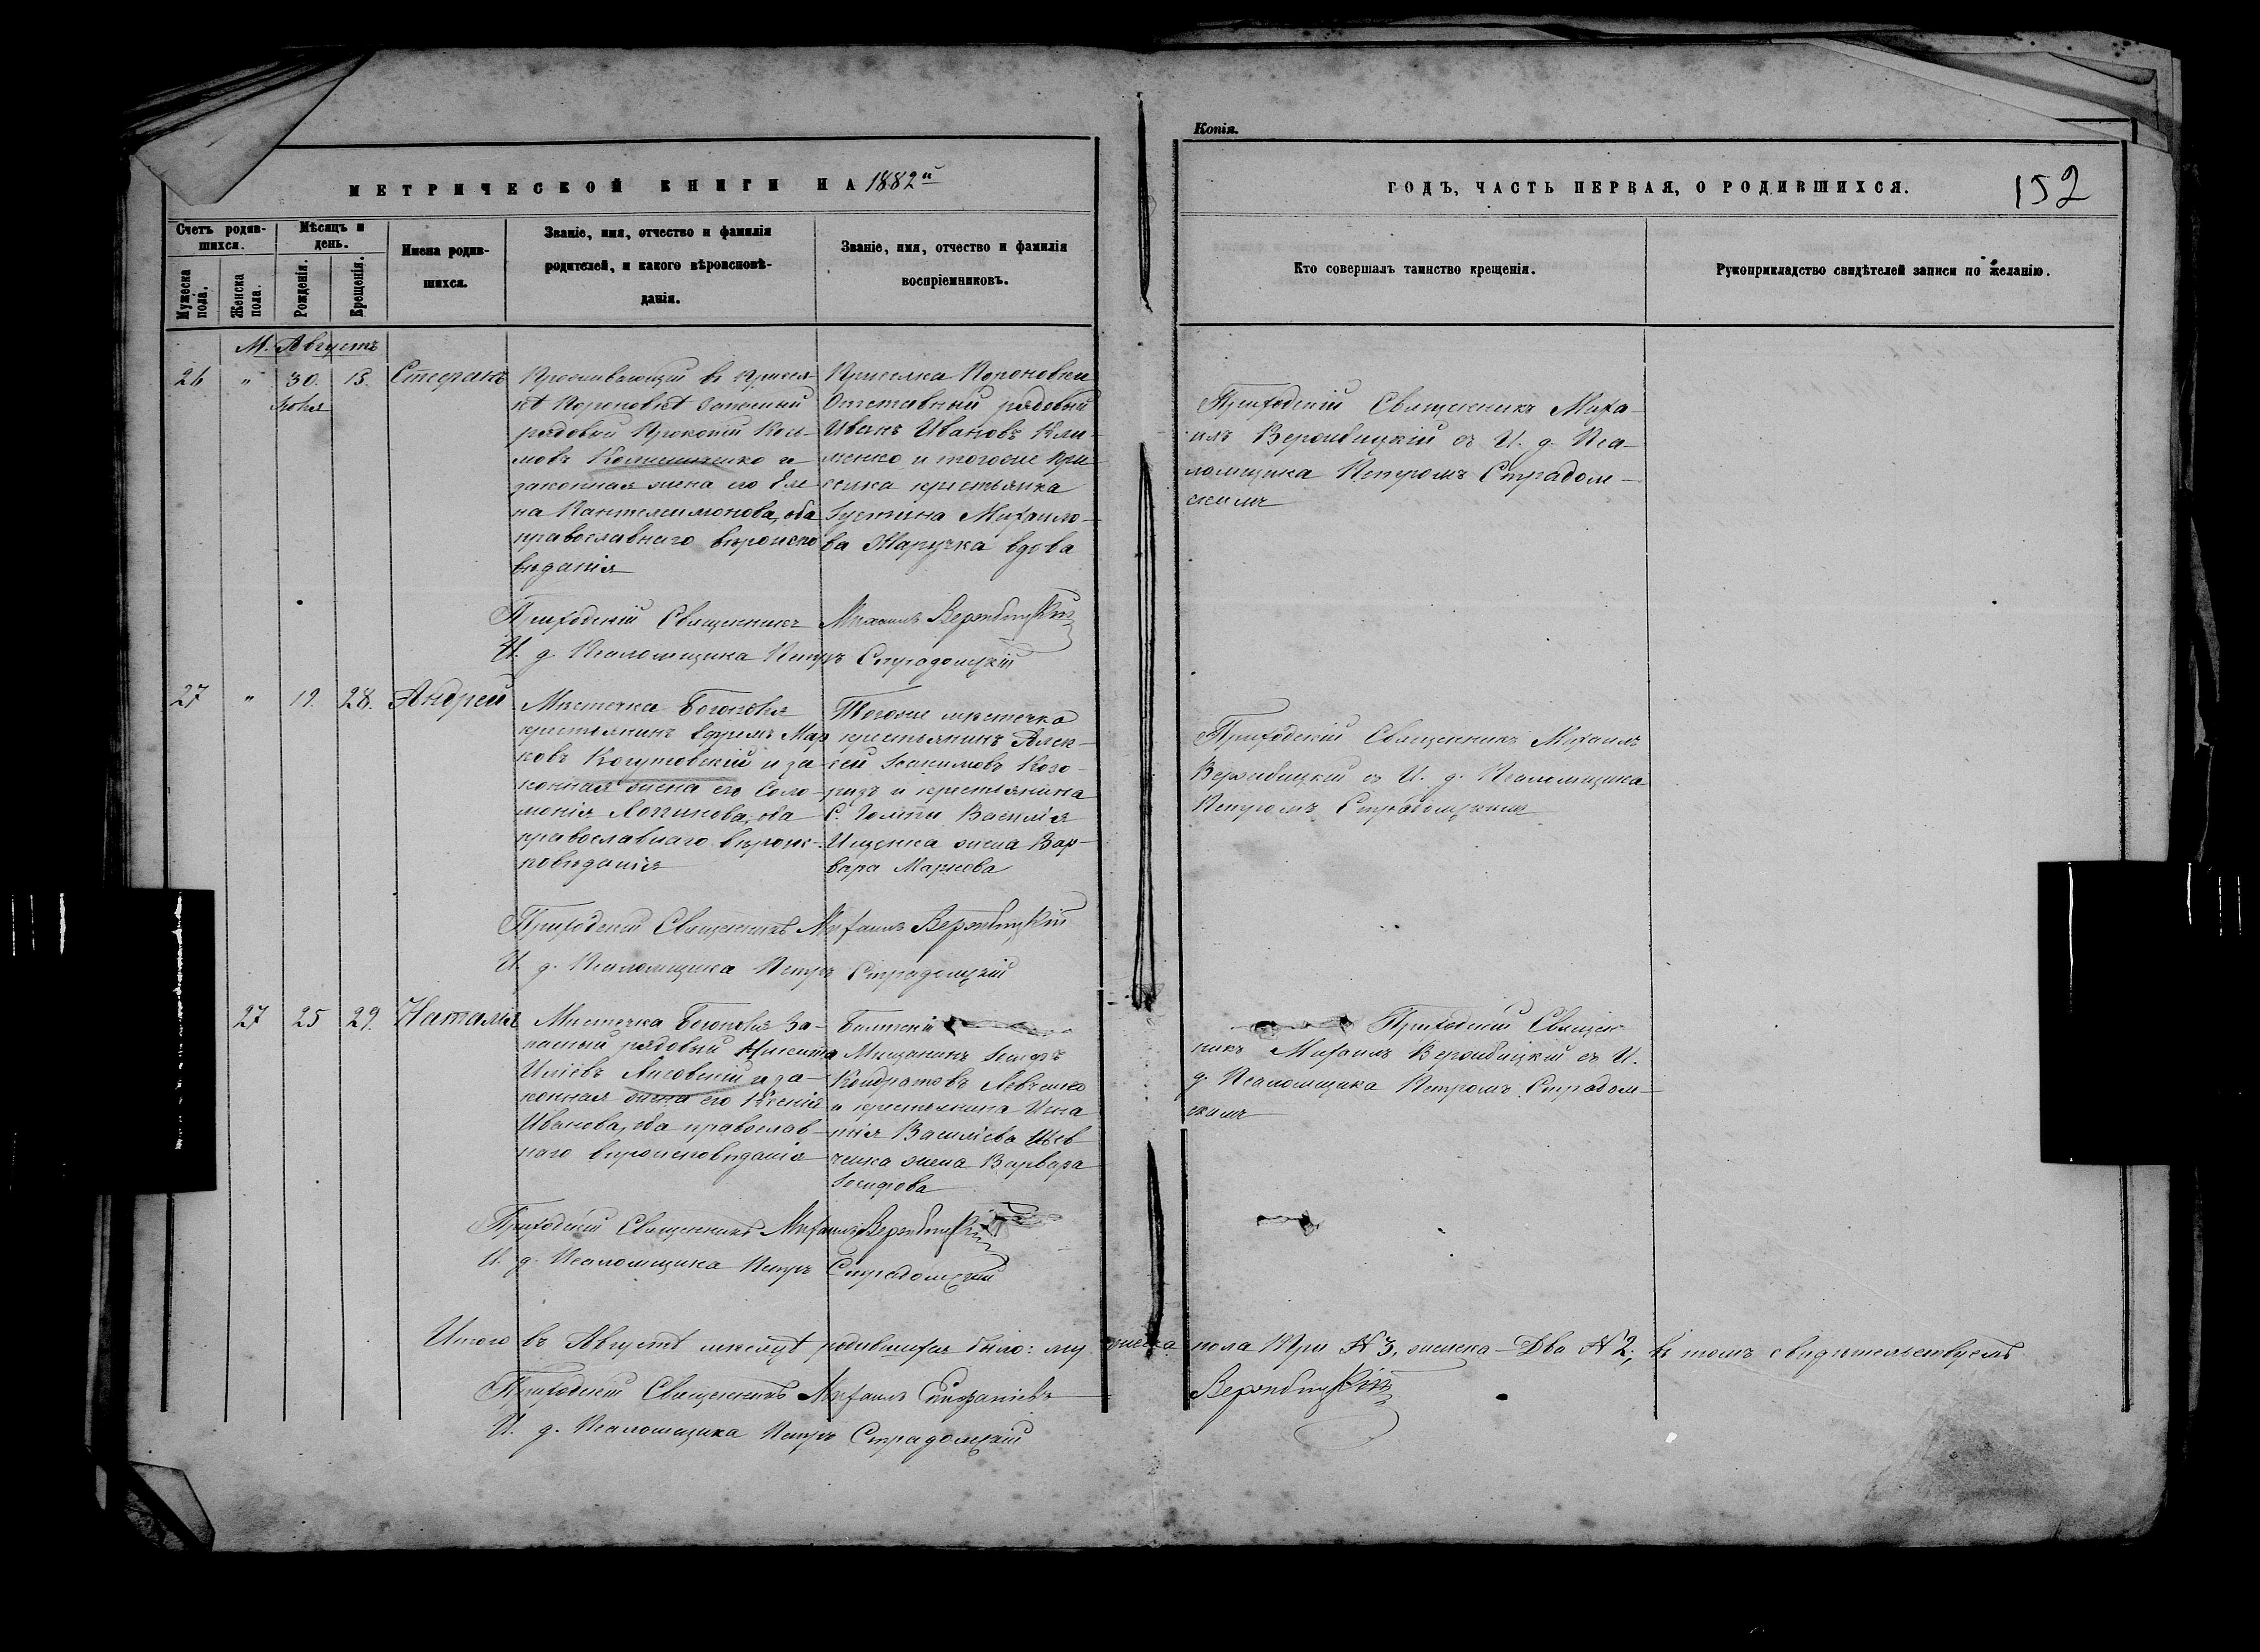 Копія.
МЕТРИЧЕСКОЙ КНИГИ НА 1882й
ГОДЪ, ЧАСТЬ ПЕРВАЯ, О РОДИВШИХСЯ.
152
Счетъ родив-
шихся.
Мужеска пола.
Женска пола.
Мѣсяцъ и
день.
Рожденія.
Крещенія.
Имена родив-
шихся.
Званіе, имя, отчество и фамилія
родителей, и какого вѣроисповѣ-
данія.
Званіе, имя, отчество и фамилія
воспріемниковъ.
Кто совершалъ таинство крещенія.
Рукоприкладство свидѣтелей записи по желанію.
М. Августъ
26 " 30. 15. Стефанъ
Проживающій въ присел-
кѣ запасный
рядовый Прокопій
и
законная жена его Еле-
на Пантелеимонова, оба
православнаго вѣроиспо
вѣданія
Приселка
Отставный рядовый
Иванъ Ивановъ Кли-
менко и тогоже при
селка крестьянка
Густина Михаило-
ва вдова
Приходскій Священникъ Миха-
илъ Вержбицкій съ И. д. Пса-
ломщика Петромъ Страдом-
скимъ
Приходскій Священникъ Михаилъ Вержбицкій
И. д. Псаломщика Петръ Страдомскій
27 " 19. 28. Андрей
Мѣстечка Богополя
крестьянинъ Ефремъ Мар
ковъ Когутовскій и за-
конная жена его Соло-
монія Логинова, оба
православнаго вѣроис-
повѣданія
Тогоже мѣстечка
крестьянинъ Алек-
сей Іоакимовъ
и крестьянина
С. Голты Василія
Ищенка жена Вар-
вара Маркова
Приходскій Священникъ Михаилъ
Вержбицкій съ И. д. Псаломщика
Петромъ Страдомскимъ
Приходскій Священникъ Михаилъ Вержбицкій
И. д. Псаломщика Петръ Страдомскій
27 25 29. Наталія
Мѣстечка Богополя За-
пасный рядовый Никита
Иліевъ Лисовскій и за-
конная жена его Ксенія
Иванова, оба православ-
наго вѣроисповѣданія
Балтскій
Мѣщанинъ Іосифъ
Кондратовъ Левченко
и крестьянина Игна
тія Василіева Шев
ченка жена Варвара
Іосифова
Приходскій Священ
никъ Михаилъ Вержбицкій съ И.
д. Псаломщика Петромъ Страдом-
скимъ
Приходскій Священникъ Михаилъ Вержбицкій
И. д. Псаломщика Петръ Страдомскій
Итого въ Августѣ мѣсяцѣ родившихся было: мужеска пола Три № 3, женска - Два № 2; въ томъ свидѣтельствуемъ
Приходскій Священникъ Михаилъ Стефаніевъ Вержбицкій
И. д. Псаломщика Петръ Страдомскій